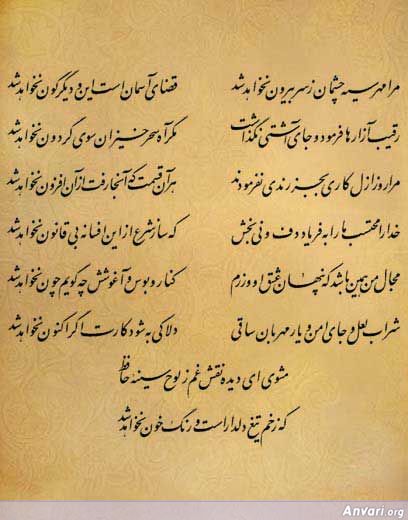 مرا مهر سیه چشمان ز سر بیرون نخواهد شد قضای آسمان است این و دیگرگون نخواهد شد
رقیب آزارها فرمود و جای آشتی نگذاشت مگر آه سحرخیزان سوی گردون نخواهد شد
مرا روز ازل کاری بجز رندی نفرمودند هر آن قسمت که آنجا رفت از آن افزون نخواهد شد
خدا را محتسب ما را به فریاد دف و نی بخش که ساز شرع از این افسانه بی قانون نخواهد شد
مجال من همین باشد که پنهان عشق او ورزم کنار و بوس و آغوشش چه گویم چون نخواهد شد
شراب لعل و جای امن و یار مهربان ساقی دلا کی به شود کارت اگر اکنون نخواهد شد
مشوی ای دیده نقش غم ز لوح سینه حافظ
که زخم تیغ دلدار است و رنگ خون نخواهد شد
Anvari.org